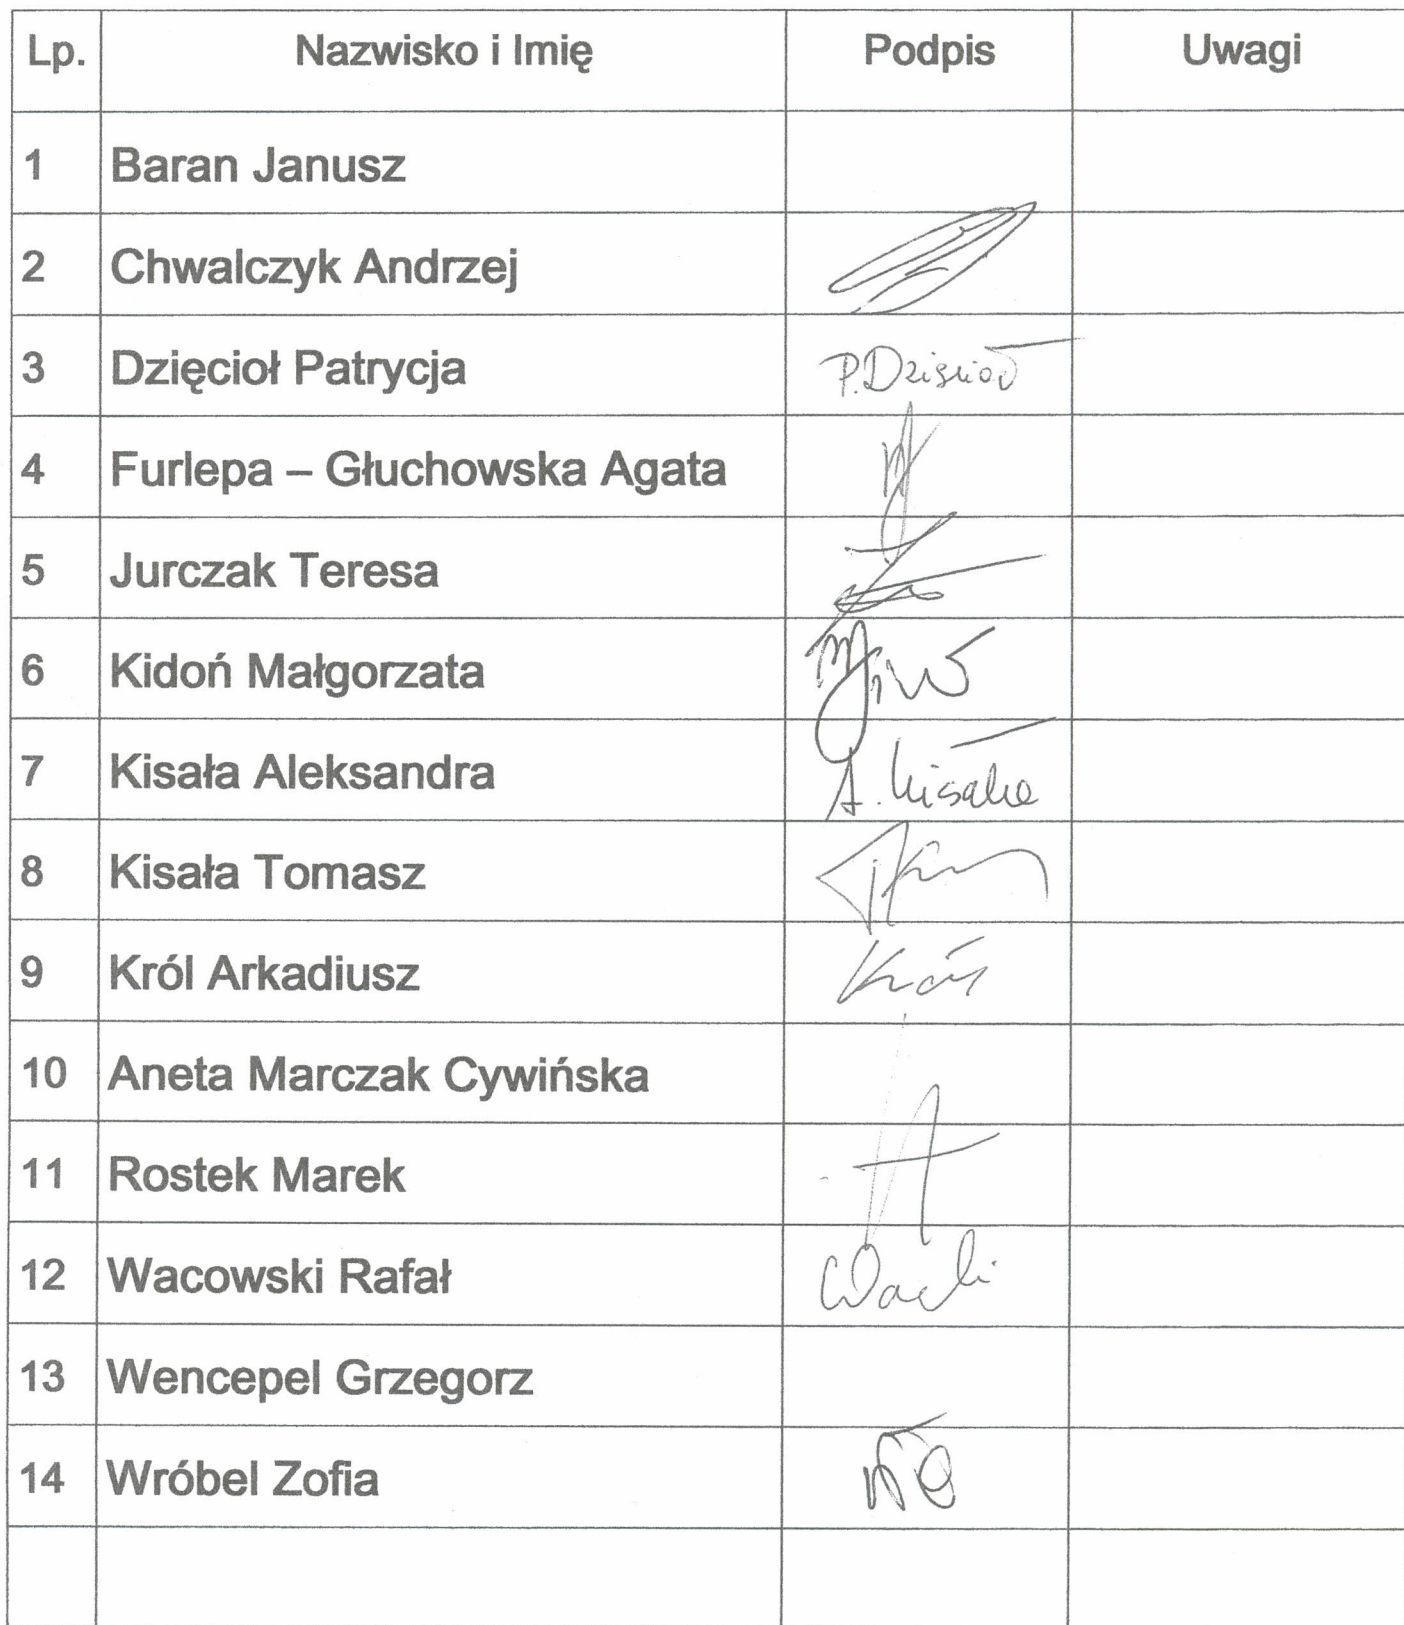 Lp. Nazwisko i Imię Podpis Uwagi
1 Baran Janusz
2 Chwalczyk Andrzej
3 Dzięcioł Patrycja P. Dzięcioł
4 Furlepa – Głuchowska Agata
5 Jurczak Teresa
6 Kidoń Małgorzata
7 Kisała Aleksandra A. Kisała
8 Kisała Tomasz
9 Król Arkadiusz Król
10 Aneta Marczak Cywińska
11 Rostek Marek
12 Wacowski Rafał
13 Wencepel Grzegorz
14 Wróbel Zofia